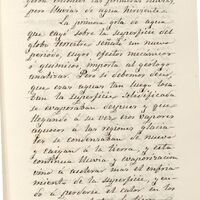 pero lluvia de agua hirviente.
La primera gota de agua
que cayó sobre la superficie del
globo terrestre, señala un nuevo
periodo, cuyos efectos mecánicos
ó químicos, importa al geólogo
analizar. Pero si debemos decir,
que esas aguas tan luego toca
ban la superficie solidificada
se evaporaban despues y que
llegando á su vez esos vapores
aqueosos á las regiones glacia
les se condensaban de nuevo
y caían á la tierra, y esta
contínua lluvia y evaporacion
vino á acelerar mas el enfria
miento de la superficie, yen
do á perderse el calor en los